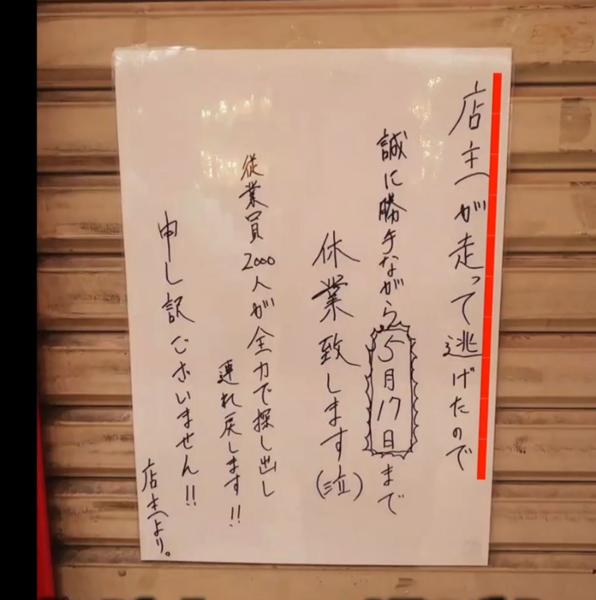 店主が走って逃げたので
誠に勝手ながら5月17日まで
休業致します(泣)
従業員2000人が全力で探し出し
連れ戻します!!
申し訳ございません!!
店主より。